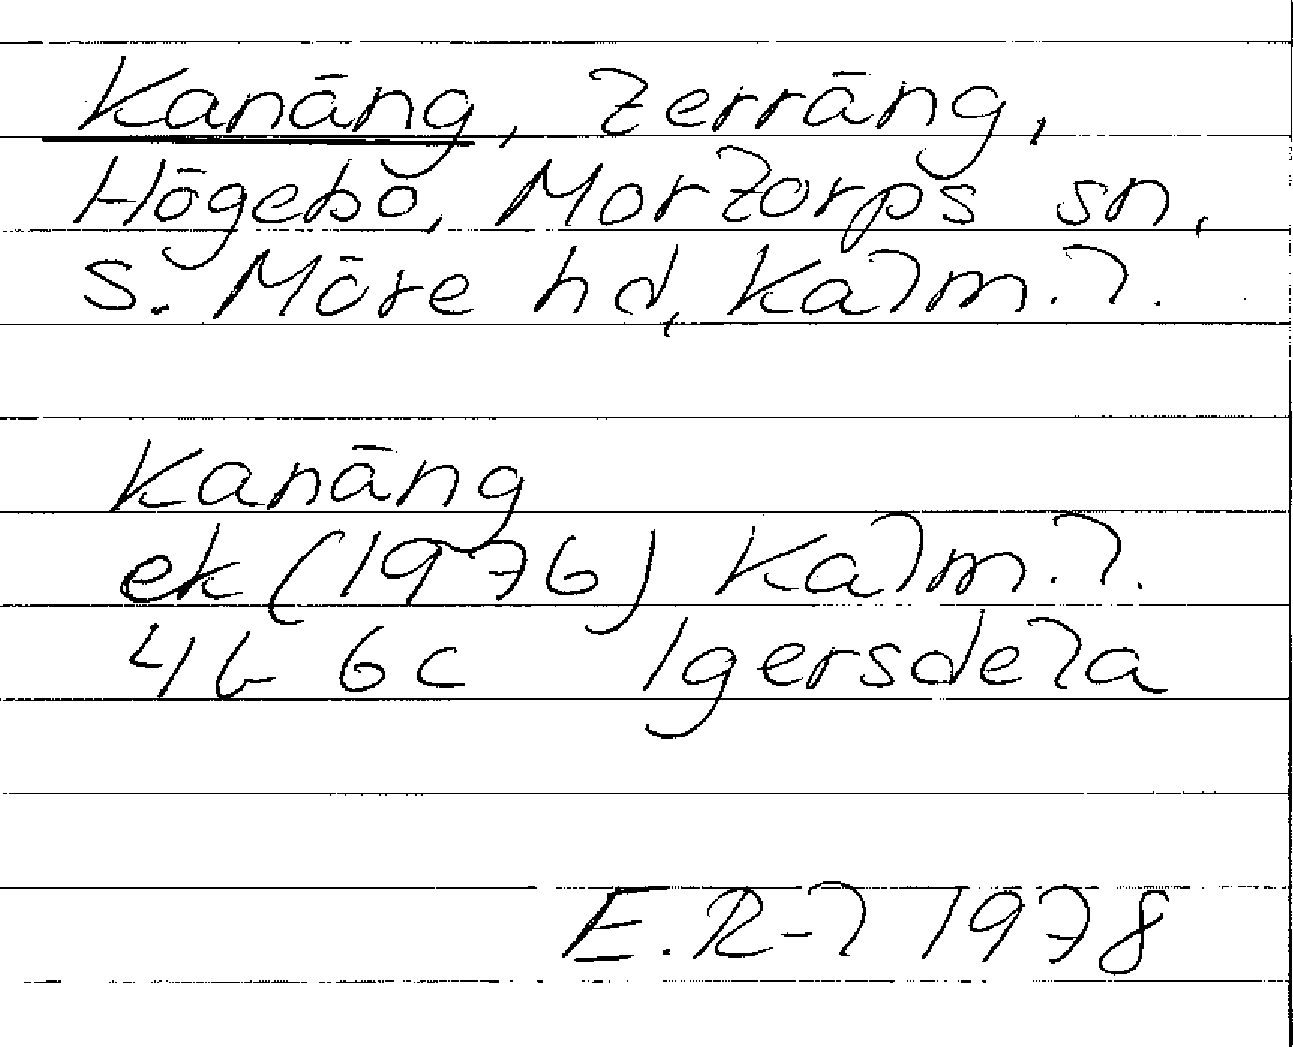 Kanäng, terräng,
Högebo, Mortorps sn,
S. Möre hd, Kalm. l.
Kanäng
ek (1976) Kalm. l.
4G 6c Igersdela
E. R-l 1978